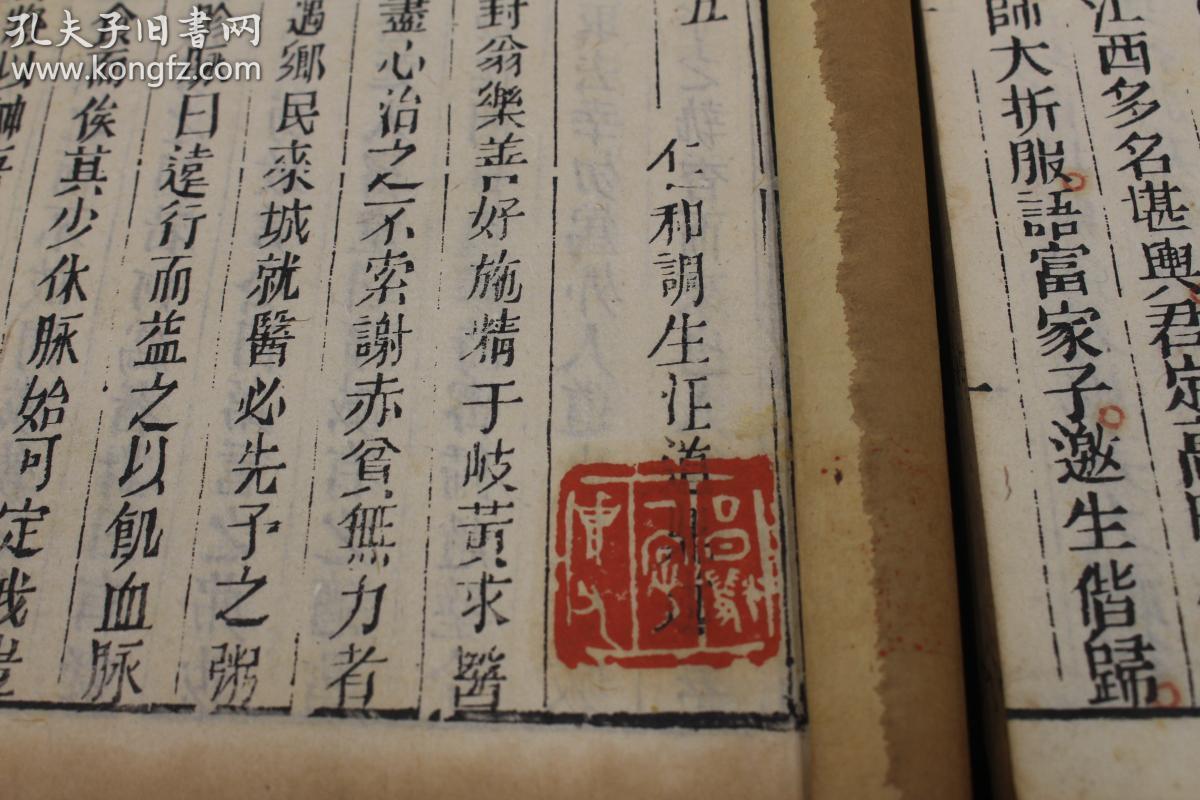 孔夫子旧书网
www.kongfz.com
西多名堪輿君定
師大折服語富家子邀生偕歸
五
仁和調生汪道鼎
封翁樂善且好施精于岐黃求醫
盡心治之不索謝赤貧無力者
遇鄉民來城就醫必先予之粥
曰遠行而益之以飢血脉
而俟其少休脉始可定我豈
以神